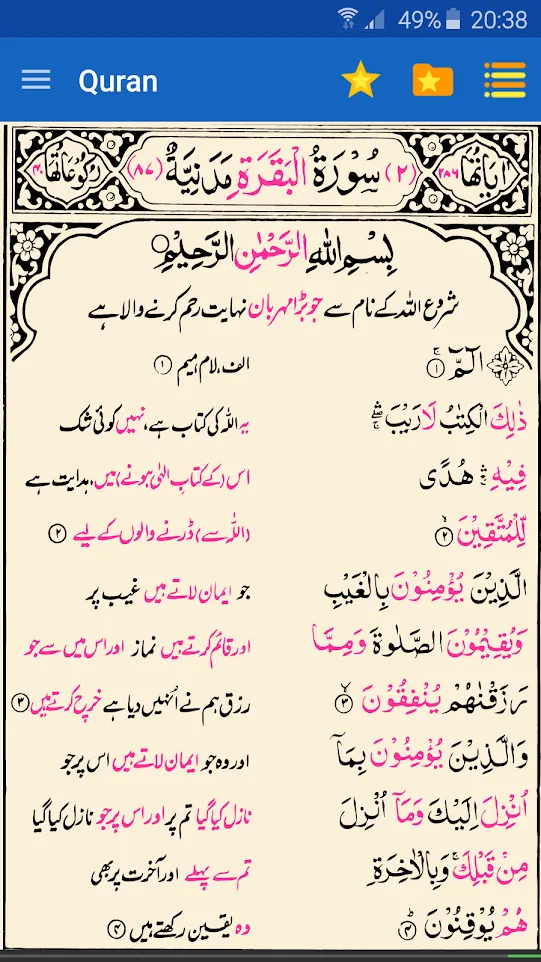 49% 20:38
Quran
اٰیَاتُهَا ٢٨٦ (٢) سُوْرَةُ الْبَقَرَةِ مَدَنِيَّةٌ (٨٧) رُكُوْعَاتُهَا ٤٠
بِسْمِ اللّٰهِ الرَّحْمٰنِ الرَّحِيْمِ
شروع اللہ کے نام سے جو بڑا مہربان نہایت رحم کرنے والا ہے
الٓمّٓ ۚ ١ الف، لام میم ١
ذٰلِكَ الْكِتٰبُ لَا رَيْبَ ۛۖ یہ اللہ کی کتاب ہے، نہیں کوئی شک
فِيْهِ ۛۚ هُدًى اس (کے کتاب الٰہی ہونے) میں، ہدایت ہے
لِّلْمُتَّقِيْنَ ۙ ٢ (اللہ سے) ڈرنے والوں کے لیے ٢
الَّذِيْنَ يُؤْمِنُوْنَ بِالْغَيْبِ جو ایمان لاتے ہیں غیب پر
وَيُقِيْمُوْنَ الصَّلٰوةَ وَمِمَّا اور قائم کرتے ہیں نماز اور اس میں سے جو
رَزَقْنٰهُمْ يُنْفِقُوْنَ ۙ ٣ رزق ہم نے اُنہیں دیا ہے خرچ کرتے ہیں ٣
وَالَّذِيْنَ يُؤْمِنُوْنَ بِمَآ اور وہ جو ایمان لاتے ہیں اس پر جو
اُنْزِلَ اِلَيْكَ وَمَآ اُنْزِلَ نازل کیا گیا تم پر اور اس پر جو نازل کیا گیا
مِنْ قَبْلِكَ ۚ وَبِالْاٰخِرَةِ تم سے پہلے اور آخرت پر بھی
هُمْ يُوْقِنُوْنَ ؕ ٤ وہ یقین رکھتے ہیں ٤